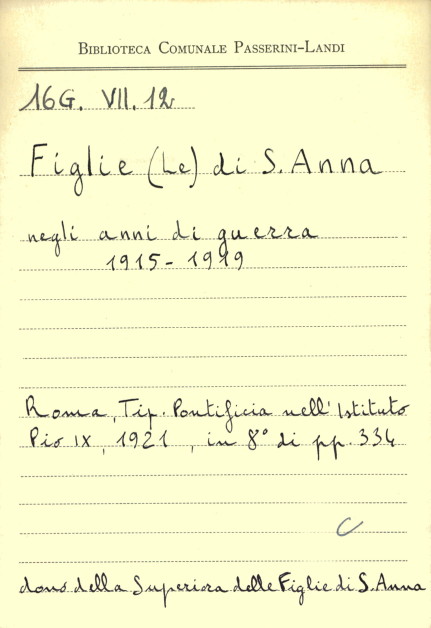 BIBLIOTECA COMUNALE PASSERINI-LANDI
16G. VII. 12
Figlie (Le) di S. Anna
negli anni di guerra
1915-1919
Roma, Tip. Pontificia nell'Istituto
Pio IX, 1921, in 8° di pp. 334
C
dono della Superiora delle Figlie di S. Anna